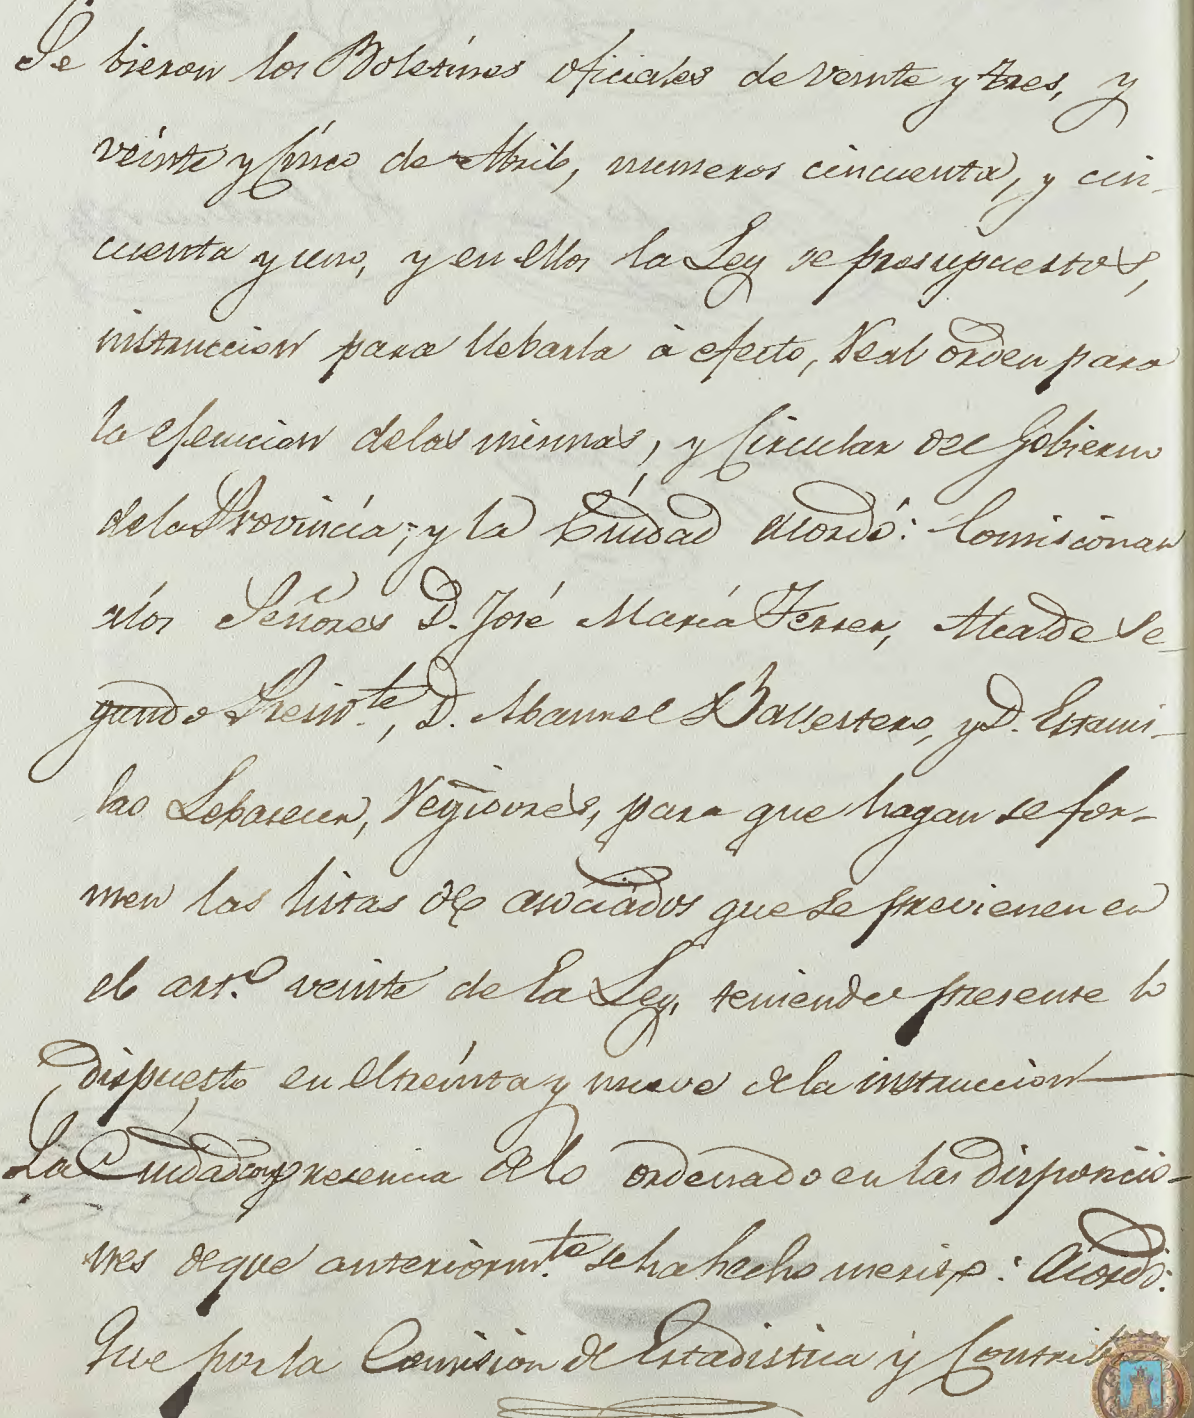 Se bieron los Boletines oficiales de veinte y tres, y
veinte y Cinco de Abril, numeros cincuenta, y cin-
cuenta y uno, y en ellos la Ley de presupuestos,
instruccion para llebarla á efecto, Real orden para
la ejecucion de las mismas, y Circular del Gobierno
de la Provincia; y la Ciudad acordó: Comisionar
a los Señores D. José María Ferrer, Alcalde Se-
gundo Presiv.te, D. Manuel Ballestero, y D. Estanis-
lao Regidores, para que hagan se for-
men las listas de asociados que se previenen en
el art.o veinte de la Ley, teniendo presente lo
dispuesto en el treinta y nueve de la instruccion
La Ciudad con presencia de lo ordenado en las disposicio-
nes de que anteriorm.te se ha hecho merito: Acordó:
Que por la Comision de Estadistica y Contrib